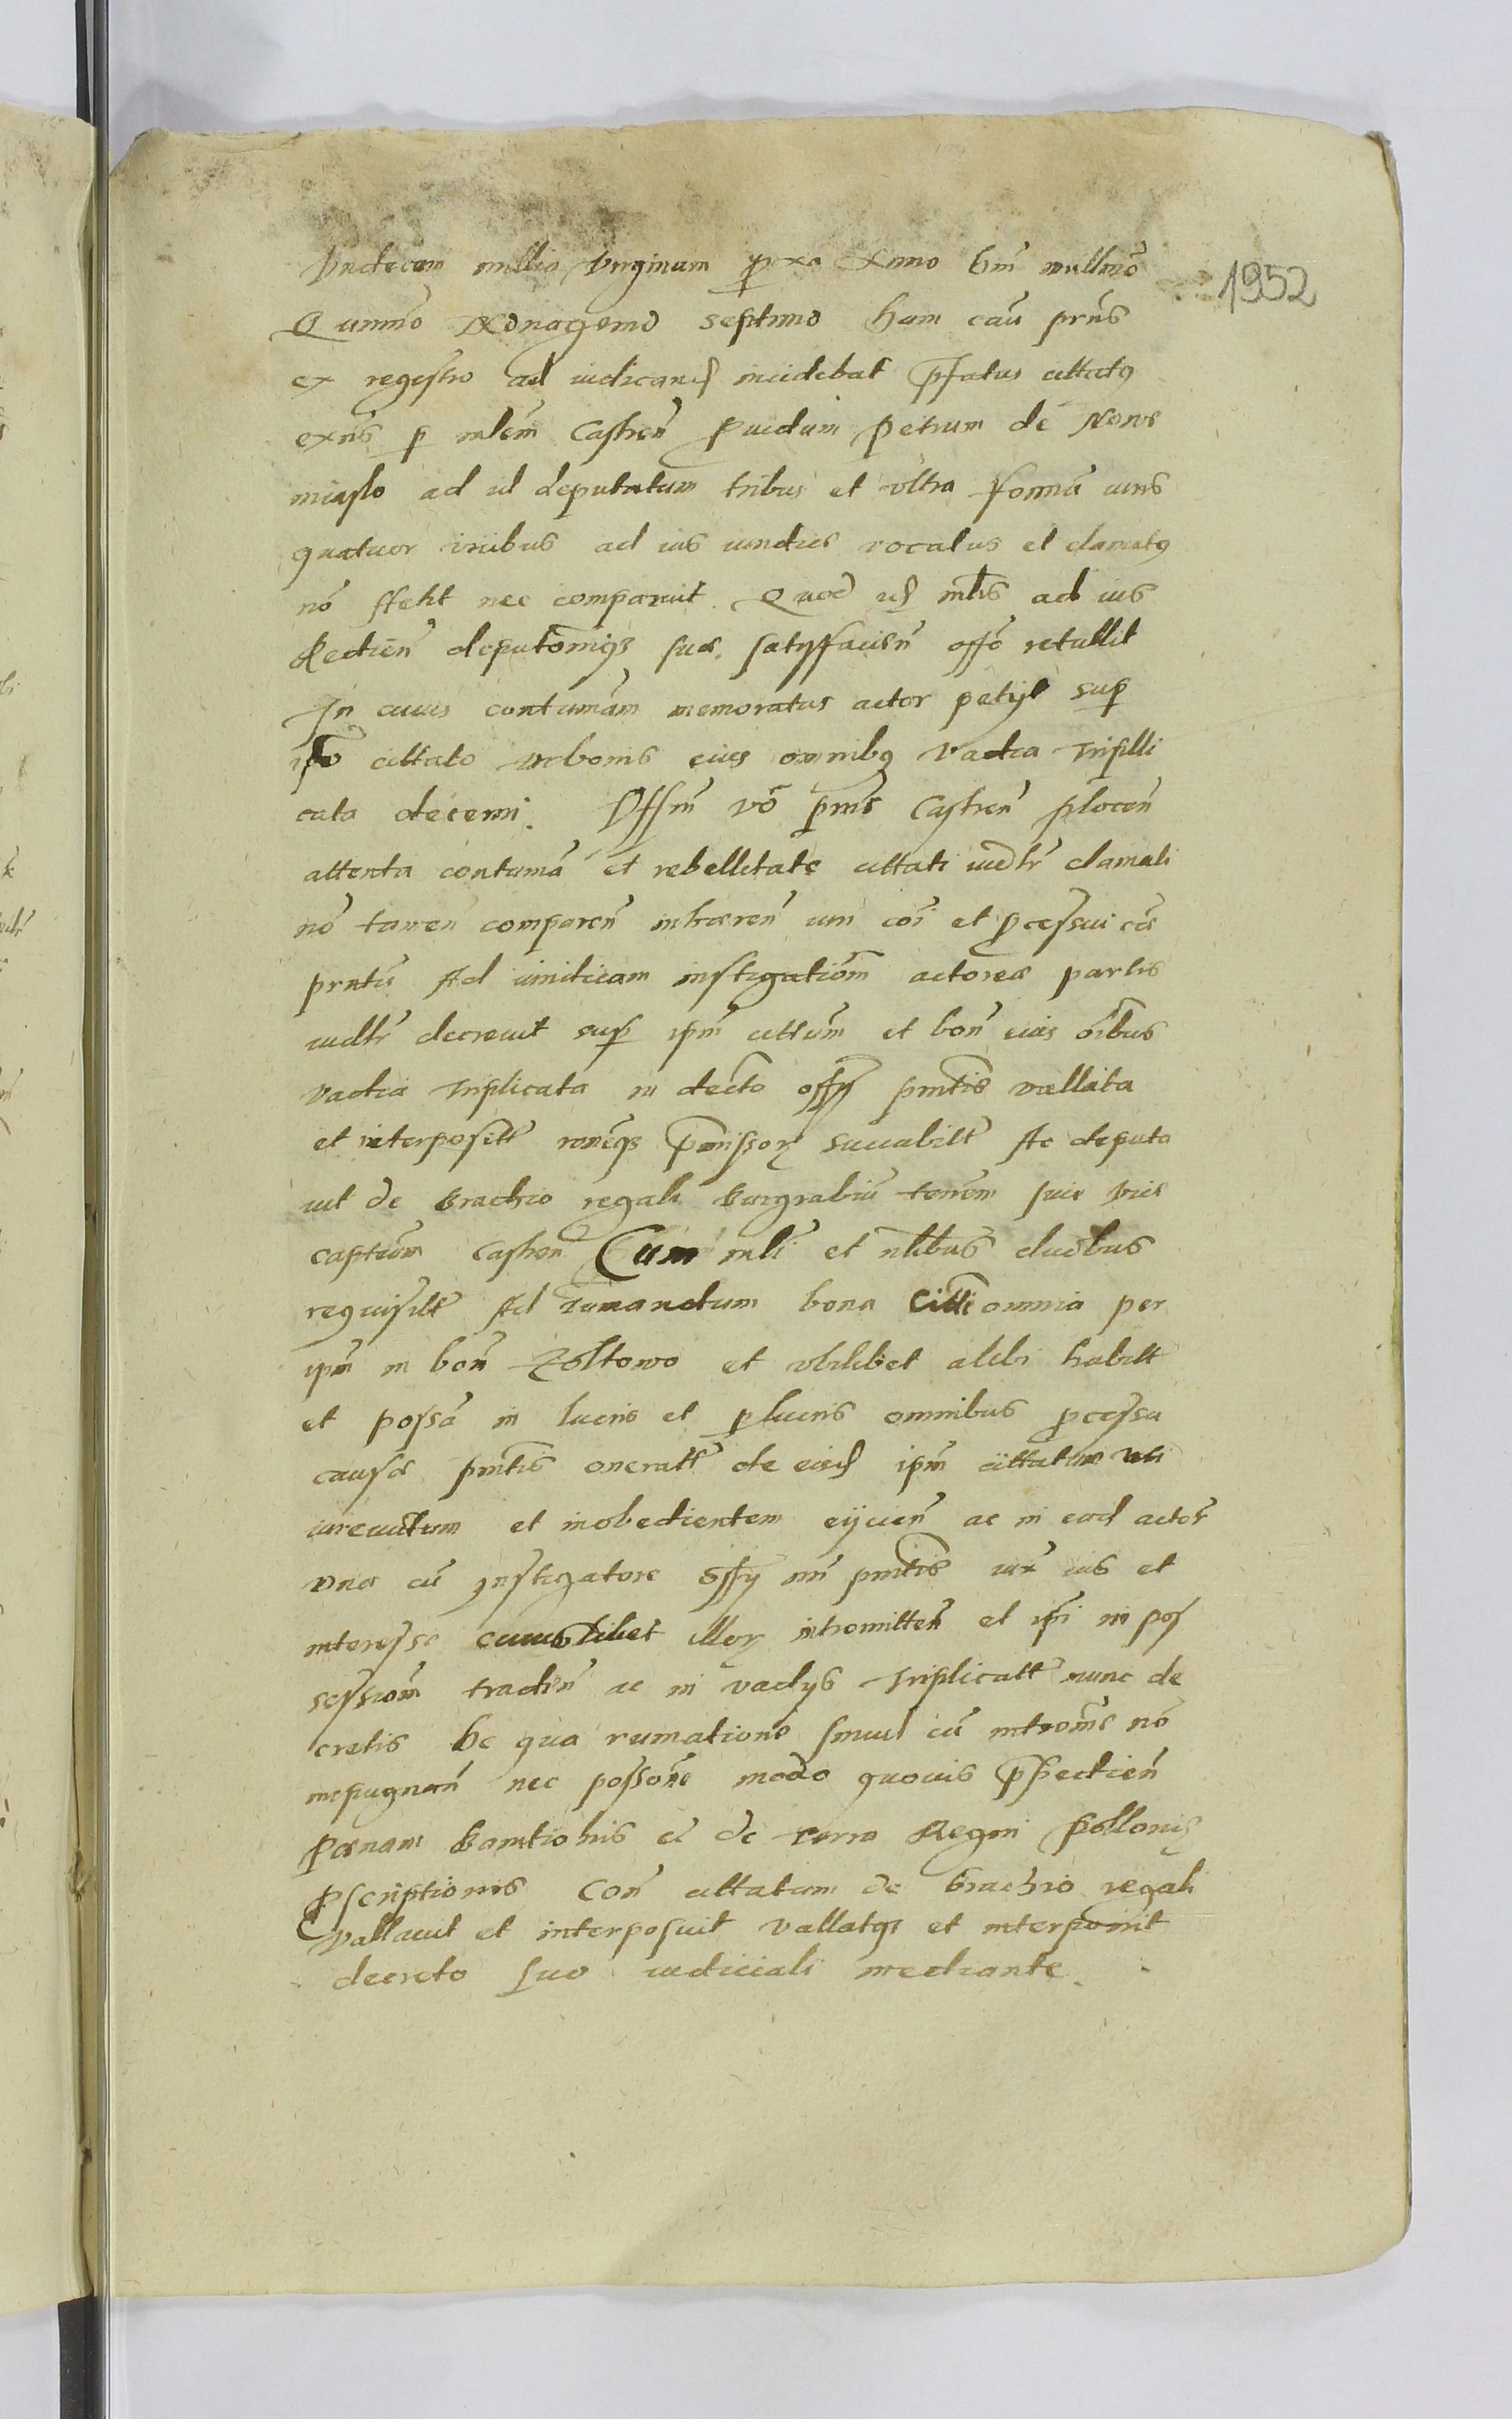 Vndecem millia Virginum pxa Anno Dni millmo
Quinmo Nonagemo septimo ham cau prns
ex registro ad iudicand incidebat pfatus cittatq
exns p mlem Castren Puidum Petrum de Nowe
miasto ad id deputatum tribus et vltra forma iuris
quatuor vicibus ad ius iundies vocatus et clamatq
no stetit nec comparuit. Quod id mlis ad ius
Redien deputomqs suae satysfacien offo retullit
In cuius contumam memoratus actor petyt sup
ipso cittato in bonis eius omnibq Vadia Tripilli
cata decerni. Offm vo pnis Castren plocen
attenta contuma et rebellitate cittati iudlr clamati
no tamen comparen inhaeren iuri coi et pcessui cae
prntis Ad iuridicam instigatiom actorea partis
iudlr decreuit sup ipm cittum et bon eius oibus
vadia Triplicata in decto offy pntis vallata
et interpositt roneqs pmissor suuabilt Ac deputa
uit de brachio regali Burgrabiu terrem siue vice
captum Castren Cum mli et nlibus duobus
requisitt Ad rumandum bona Citti omnia per
ipm in bon Zoltowo et vbilibet alibi habitt
et possa in lucris et plucris omnibus pcessu
causae pntis oneratt de eisd ipm cittatum uti
iurevictum et inobedientem eijcien ac in ead actor
vna cu Instigatore Offy nri pntis iux ius et
interesse cuiuslibet illor intromitten et ipi in pos
sessiom tradin ac in vadys Triplicatt nunc de
cretis be qua rumatione simul cu intromis no
inpugnan nec possone modo quouis ppedien
Poenam bannitionis et de terra Regni Polloniae
pscriptionis Con cittatum de brachio regali
Vallauit et interposuit Vallatqs et interponit
decreto suo iudiciali mediante.
1952